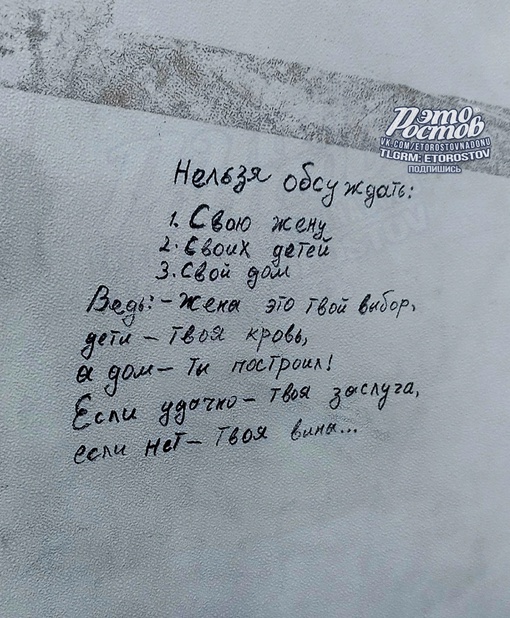 это
Ростов
VK.COM/ETOROSTOVNADONU
TLGRM: ETOROSTOV
подпишись
Нельзя обсуждать:
1. Свою жену
2. Своих детей
3. Свой дом
Ведь: - жена это твой выбор,
дети - твоя кровь,
а дом - ты построил!
Если удачно - твоя заслуга,
если нет - твоя вина...